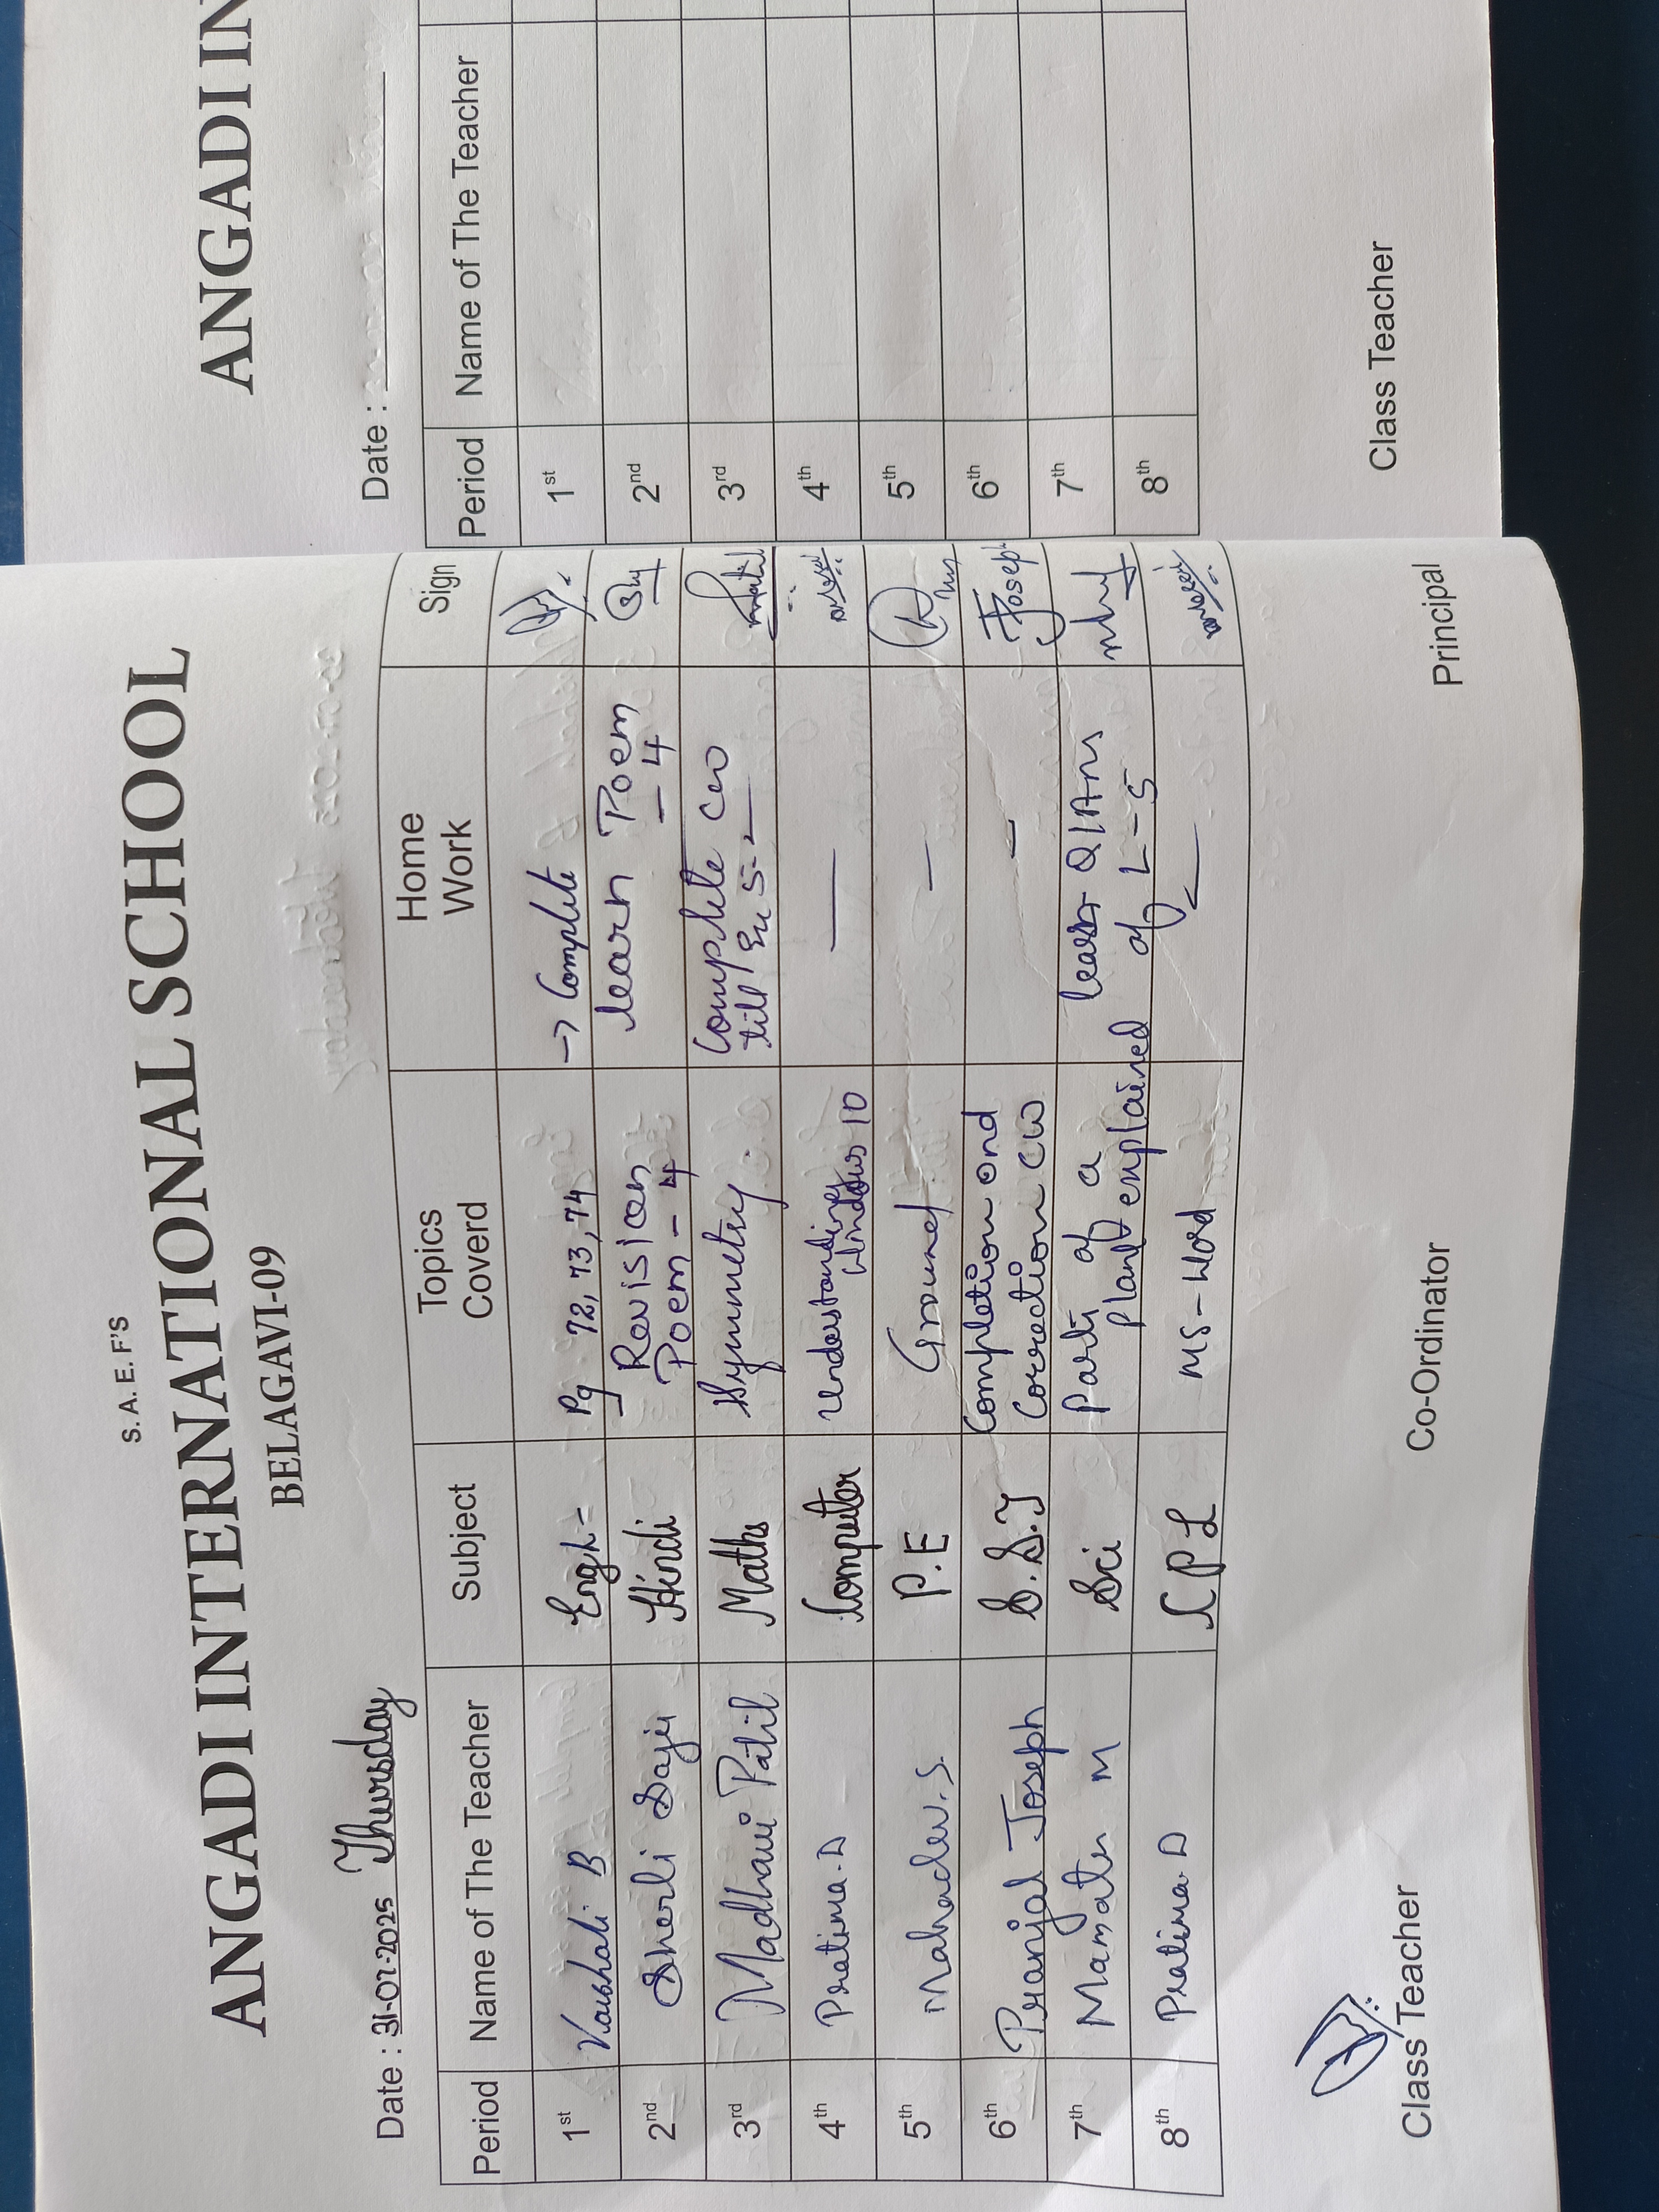 S. A. E. F'S
ANGADI INTERNATIONAL SCHOOL
BELAGAVI-09
Date : 31-07-2025 Thursday
Period Name of The Teacher Subject Topics Coverd Home Work Sign
1st Vaishali B Engl= Pg 72, 73, 74 → Complete
2nd Sherli Saju Hindi Revision Poem - 4 learn Poem - 4
3rd Madhavi Patil Maths Symmetry Complete CW till Ex 5.2
4th Pratima.D Computer Understanding Windows 10 —
5th Mahadev.S. P.E Ground —
6th Pranjal Joseph S.S.T Completion and Correction CW — Joseph
7th Mamata M Sci Parts of a Plant explained learn Q/Ans of L-5
8th Pratima.D CPL MS-Word —
Class Teacher Co-Ordinator Principal
ANGADI IN
Date :
Period Name of The Teacher
1st
2nd
3rd
4th
5th
6th
7th
8th
Class Teacher